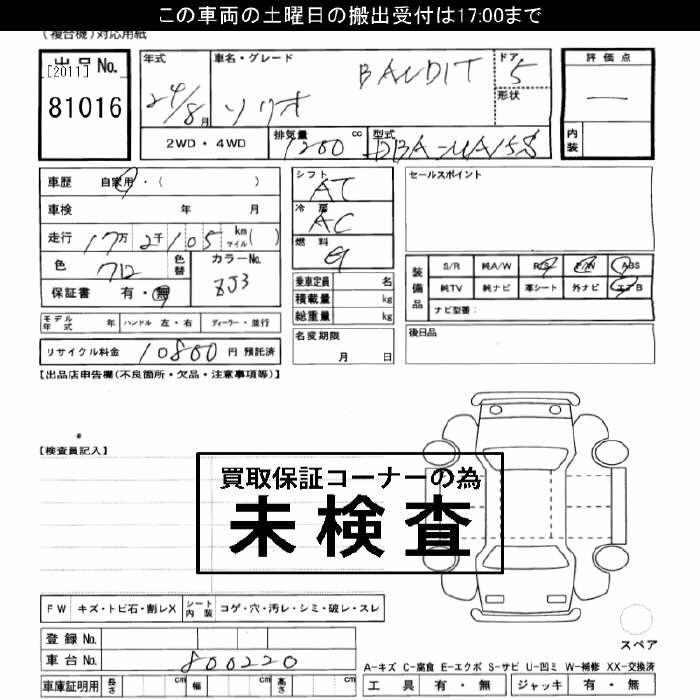 この車両の土曜日の搬出受付は17:00まで
(複合機)対応用紙
出品No.
[2011]
81016
年式 24/8月
車名・グレード BANDIT
ソリオ
ドア 5
形状
評価点
内装
2WD・4WD 排気量 1200 cc 型式 DBA-MA15S
車歴 自家用・( )
車検 年 月
走行 17万2千105 km マイル( )
色 712 色替 カラーNo. ZJ3
保証書 有・無
シフト AT
冷房 AC
燃料 G
乗車定員 名
積載量 kg
総重量 kg
セールスポイント
装備品 S/R 純A/W R/S P/W ABS
純TV 純ナビ 革シート 外ナビ エアB
ナビ型番:
モデル年式 年 ハンドル 左・右 ディーラー・並行
名変期限 月 日
後日品
リサイクル料金 10800 円 預託済
【出品店申告欄(不良箇所・欠品・注意事項等)】
【検査員記入】
買取保証コーナーの為
未検査
FW キズ・トビ石・割レX シート内装 コゲ・穴・汚レ・シミ・破レ・スレ
登録No.
車台No. 800220
車庫証明用 長さ cm 幅 cm 高さ cm
スペア
A-キズ C-腐食 E-エクボ S-サビ U-凹ミ W-補修 XX-交換済
工具 有・無 ジャッキ 有・無